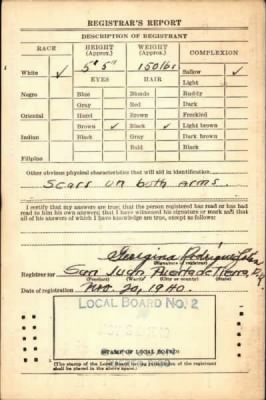 REGISTRAR'S REPORT
DESCRIPTION OF REGISTRANT
RACE HEIGHT (Approx.) WEIGHT (Approx.) COMPLEXION
White ✓ 5' 5" 150 lbs. Sallow ✓
EYES HAIR Light
Negro Blue Blonde Ruddy
Gray Red Dark
Oriental Hazel Brown Freckled
Brown ✓ Black ✓ Light brown
Indian Black Gray Dark brown
Bald Black
Filipino
Other obvious physical characteristics that will aid in identification
Scars on both arms.
I certify that my answers are true; that the person registered has read or has had read to him his own answers; that I have witnessed his signature or mark and that all of his answers of which I have knowledge are true, except as follows:
Georgina Rodríguez
(Signature of registrar)
Registrar for San Juan, Puerta de Tierra,
(Precinct) (Ward) (City or county) (State)
Date of registration Nov. 20, 1940.
LOCAL BOARD No. 2
STAMP OF LOCAL BOARD
(The stamp of the Local Board having jurisdiction of the registrant shall be placed in the above space.)